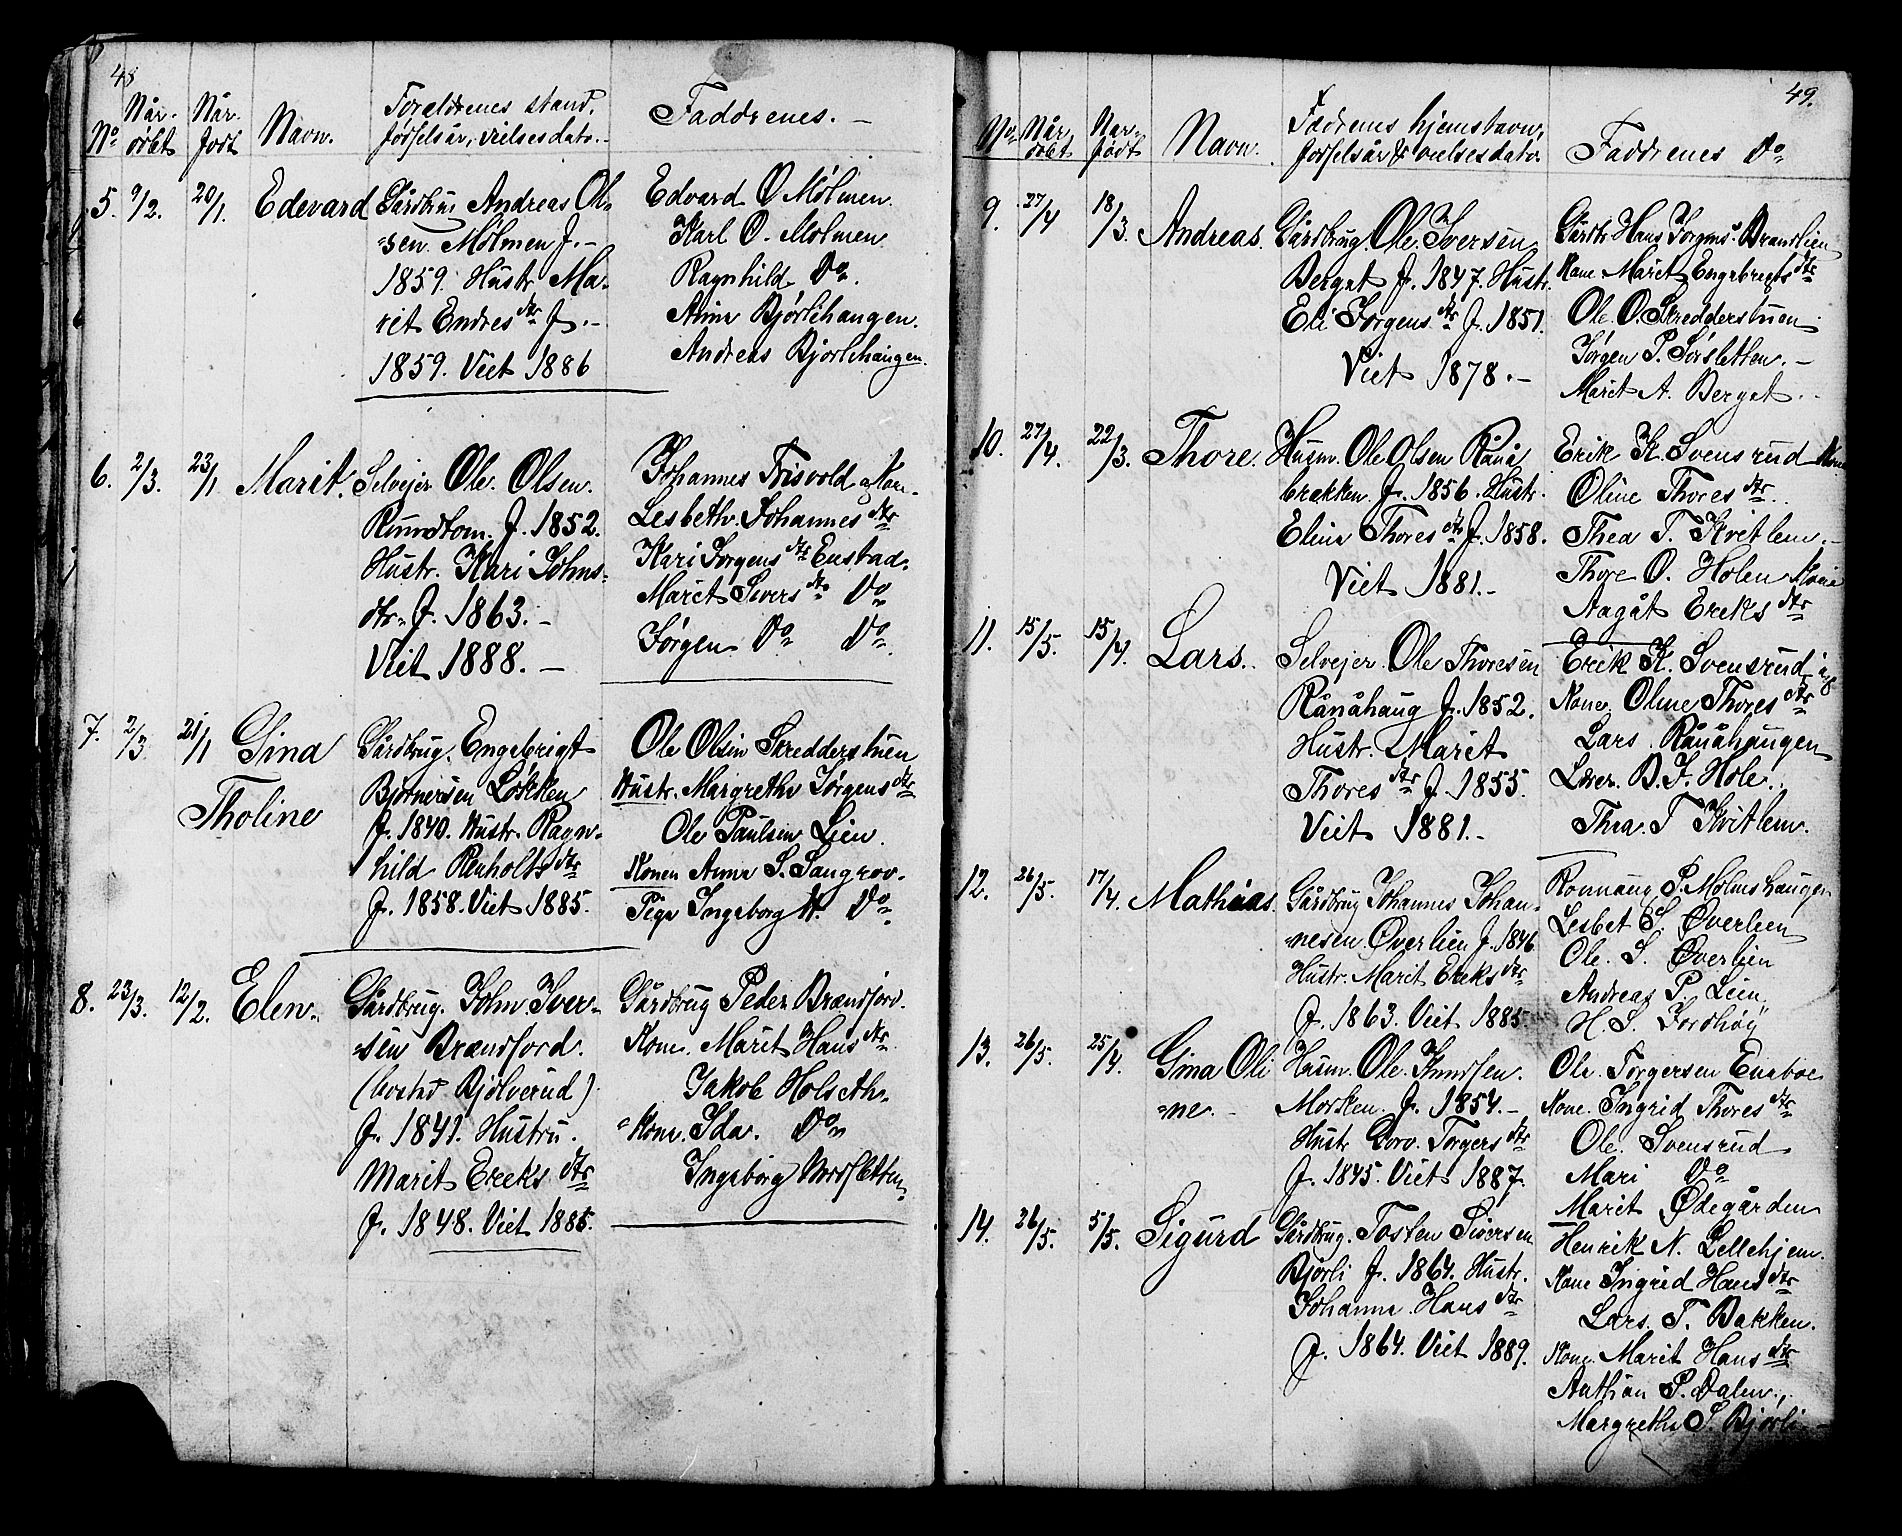 48
No. Når døbt Når født Navn. Foreldrenes stand, fødselsår, vielsesdato. Faddrenes. –
5. 9/2. 20/1. Edevard Gårdbrug Andreas Ol-
sen Mølmen f. –
1859. Hustr. Ma-
rit Endresdtr f. –
1859. Viet 1886
Edvard O Mølmen.
Karl O. Mølmen
Ragnhild Do.
Anne Bjørlihaugen.
Andreas Bjorlihaugen.
6. 2/3. 23/1 Marit. Selvejer Ole Olsen.
Rundtom. f. 1852.
Hustr. Kari Johns-
dtr. f. 1863. –
Viet 1888. –
Johannes Trisvold & Kon.
Lesbeth Johannesdtr
Kari Jorgensdtr Enstad.
Maret Siversdtr Do
Jørgen Do Do.
7. 2/3. 21/1 Gina
Tholine
Gårdbrug. Engebrigt
Bjørnersen Løkken
f. 1840. Hustr. Ragn-
hild Renholtsdtr
f. 1858. Viet 1885.
Ole Olsen Skredderstuen
Hustr. Margrethe Jørgensdtr
Ole Paulsen Lien.
Konen Anne S. Sangrov.
Pige Ingeborg H. Do.
8. 23/3. 12/2. Elen. Gårdbrug. John Iver-
sen Brændford.
(bosted Bjølverud)
f. 1841. Hustru.
Marit Ereksdtr
f. 1848. Viet 1885.
Gårdbrug Peder Brændford.
Kone. Marit Hansdtr.
Jakob Holseth.
Kone. Ida. Do
Ingeborg Nordsletten
49.
No. Når døbt Når født Navn. Fadrenes hjemstavn, fødselsår & vielsesdato Faddrenes Do
9. 27/4 18/3. Andreas. Gårdbrug Ole Iversen
Berget f. 1847. Hustr.
Eli Jørgensdtr f. 1851.
Viet 1878. –
Gårdbr Hans Jørgens. Brandlien
Kone Maret Engebregtsdtr
Ole O. Skredderstuen
Jørgen P. Sørsletten. –
Maret A. Berget.
10. 27/4. 22/3. Thore. Husm. Ole Olsen Rånå
brækken. f. 1856. Hustr.
Eline Thoresdtr f. 1858.
Viet 1881. –
Erik K. Svensrud Kone
Oline Thoresdtr.
Thea T. Kvitlem. –
Thore O. Holen Kone
Aagåt Ereksdtr
11. 15/5. 15/4. Lars. Selvejer Ole Thoresen
Rånåhaug f. 1852.
Hustr. Marit
Thoresdtr f. 1855.
Viet 1881. –
Erik K. Svensrud og
Kone. Oline Thoresdtr
Lars Rånåhaugen
Lærer B. J. Hole.
Thea. T Kvitlem.
12. 26/5. 17/4. Mathias. Gårdbrug Johannes Johan-
nesen Øverlien f. 1846
Hustr. Marit Ereksdtr
f. 1863. Viet 1885
Ronnaug P. Mølmshaugen
Lesbet S. Øverlien
Ole. S. Øverlien
Andreas P. Lien.
H. S. Jordhøy
13. 26/5. 25/4. Gina Oli
ne. –
Husm. Ole Knudsen.
Morken. f. 1854. –
Hustr Dorv. Torgersdtr
f. 1845. Viet 1887.
Ole. Torgersen Eneboe
Kone. Ingrid Thoresdtr
Ole. Svensrud
Mari Do
Marit Ødegården
14. 26/5. 5/5. Sigurd Gårdbrug. Tosten Siversen
Bjørli f. 1864. Hustr.
Johanne Hansdtr
f. 1864. Viet 1889.
Henrik N. Lellehjem.
Kone Ingrid Hansdtr
Lars. T. Bakken.
Kone. Marit Hansdtr
Anthon P. Dalen.
Margrethe S. Bjørli